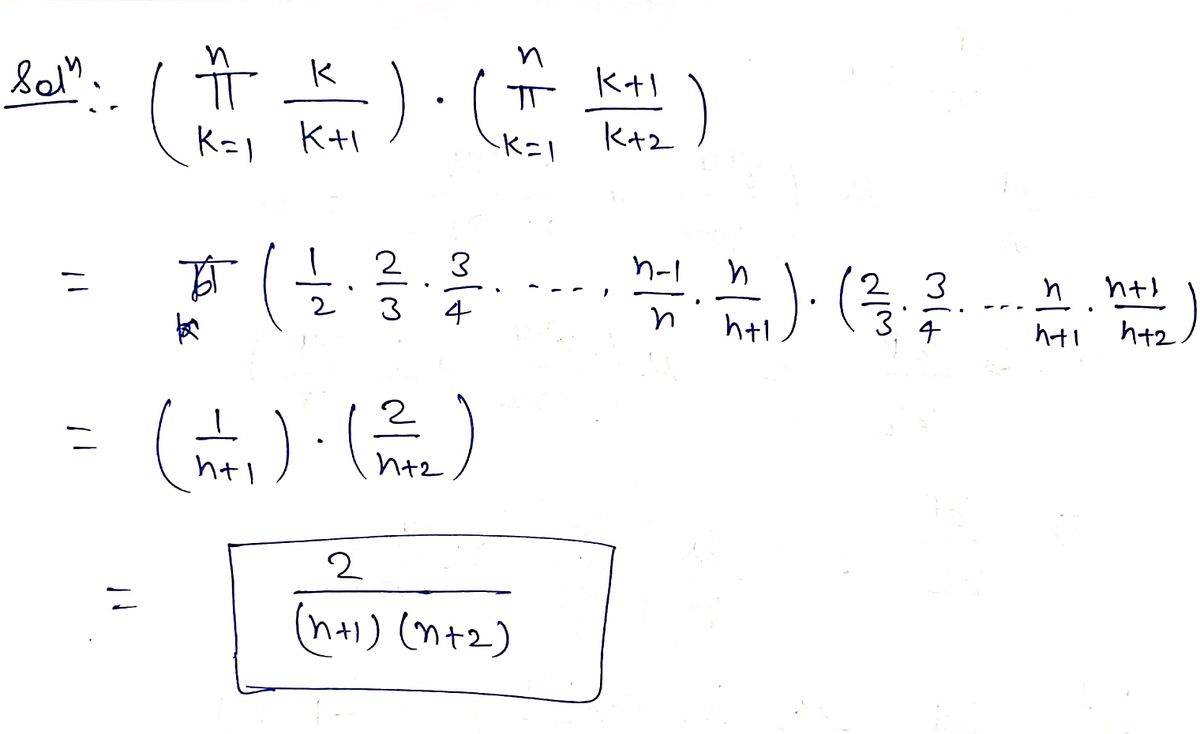 Solⁿ:- ( n ∏ k=1 k/(k+1) ) · ( n ∏ k=1 (k+1)/(k+2) )
= ( 1/2 · 2/3 · 3/4 · ----, (n-1)/n · n/(n+1) ) · ( 2/3 · 3/4 · --- n/(n+1) · (n+1)/(n+2) )
= ( 1/(n+1) ) · ( 2/(n+2) )
= 2/((n+1)(n+2))